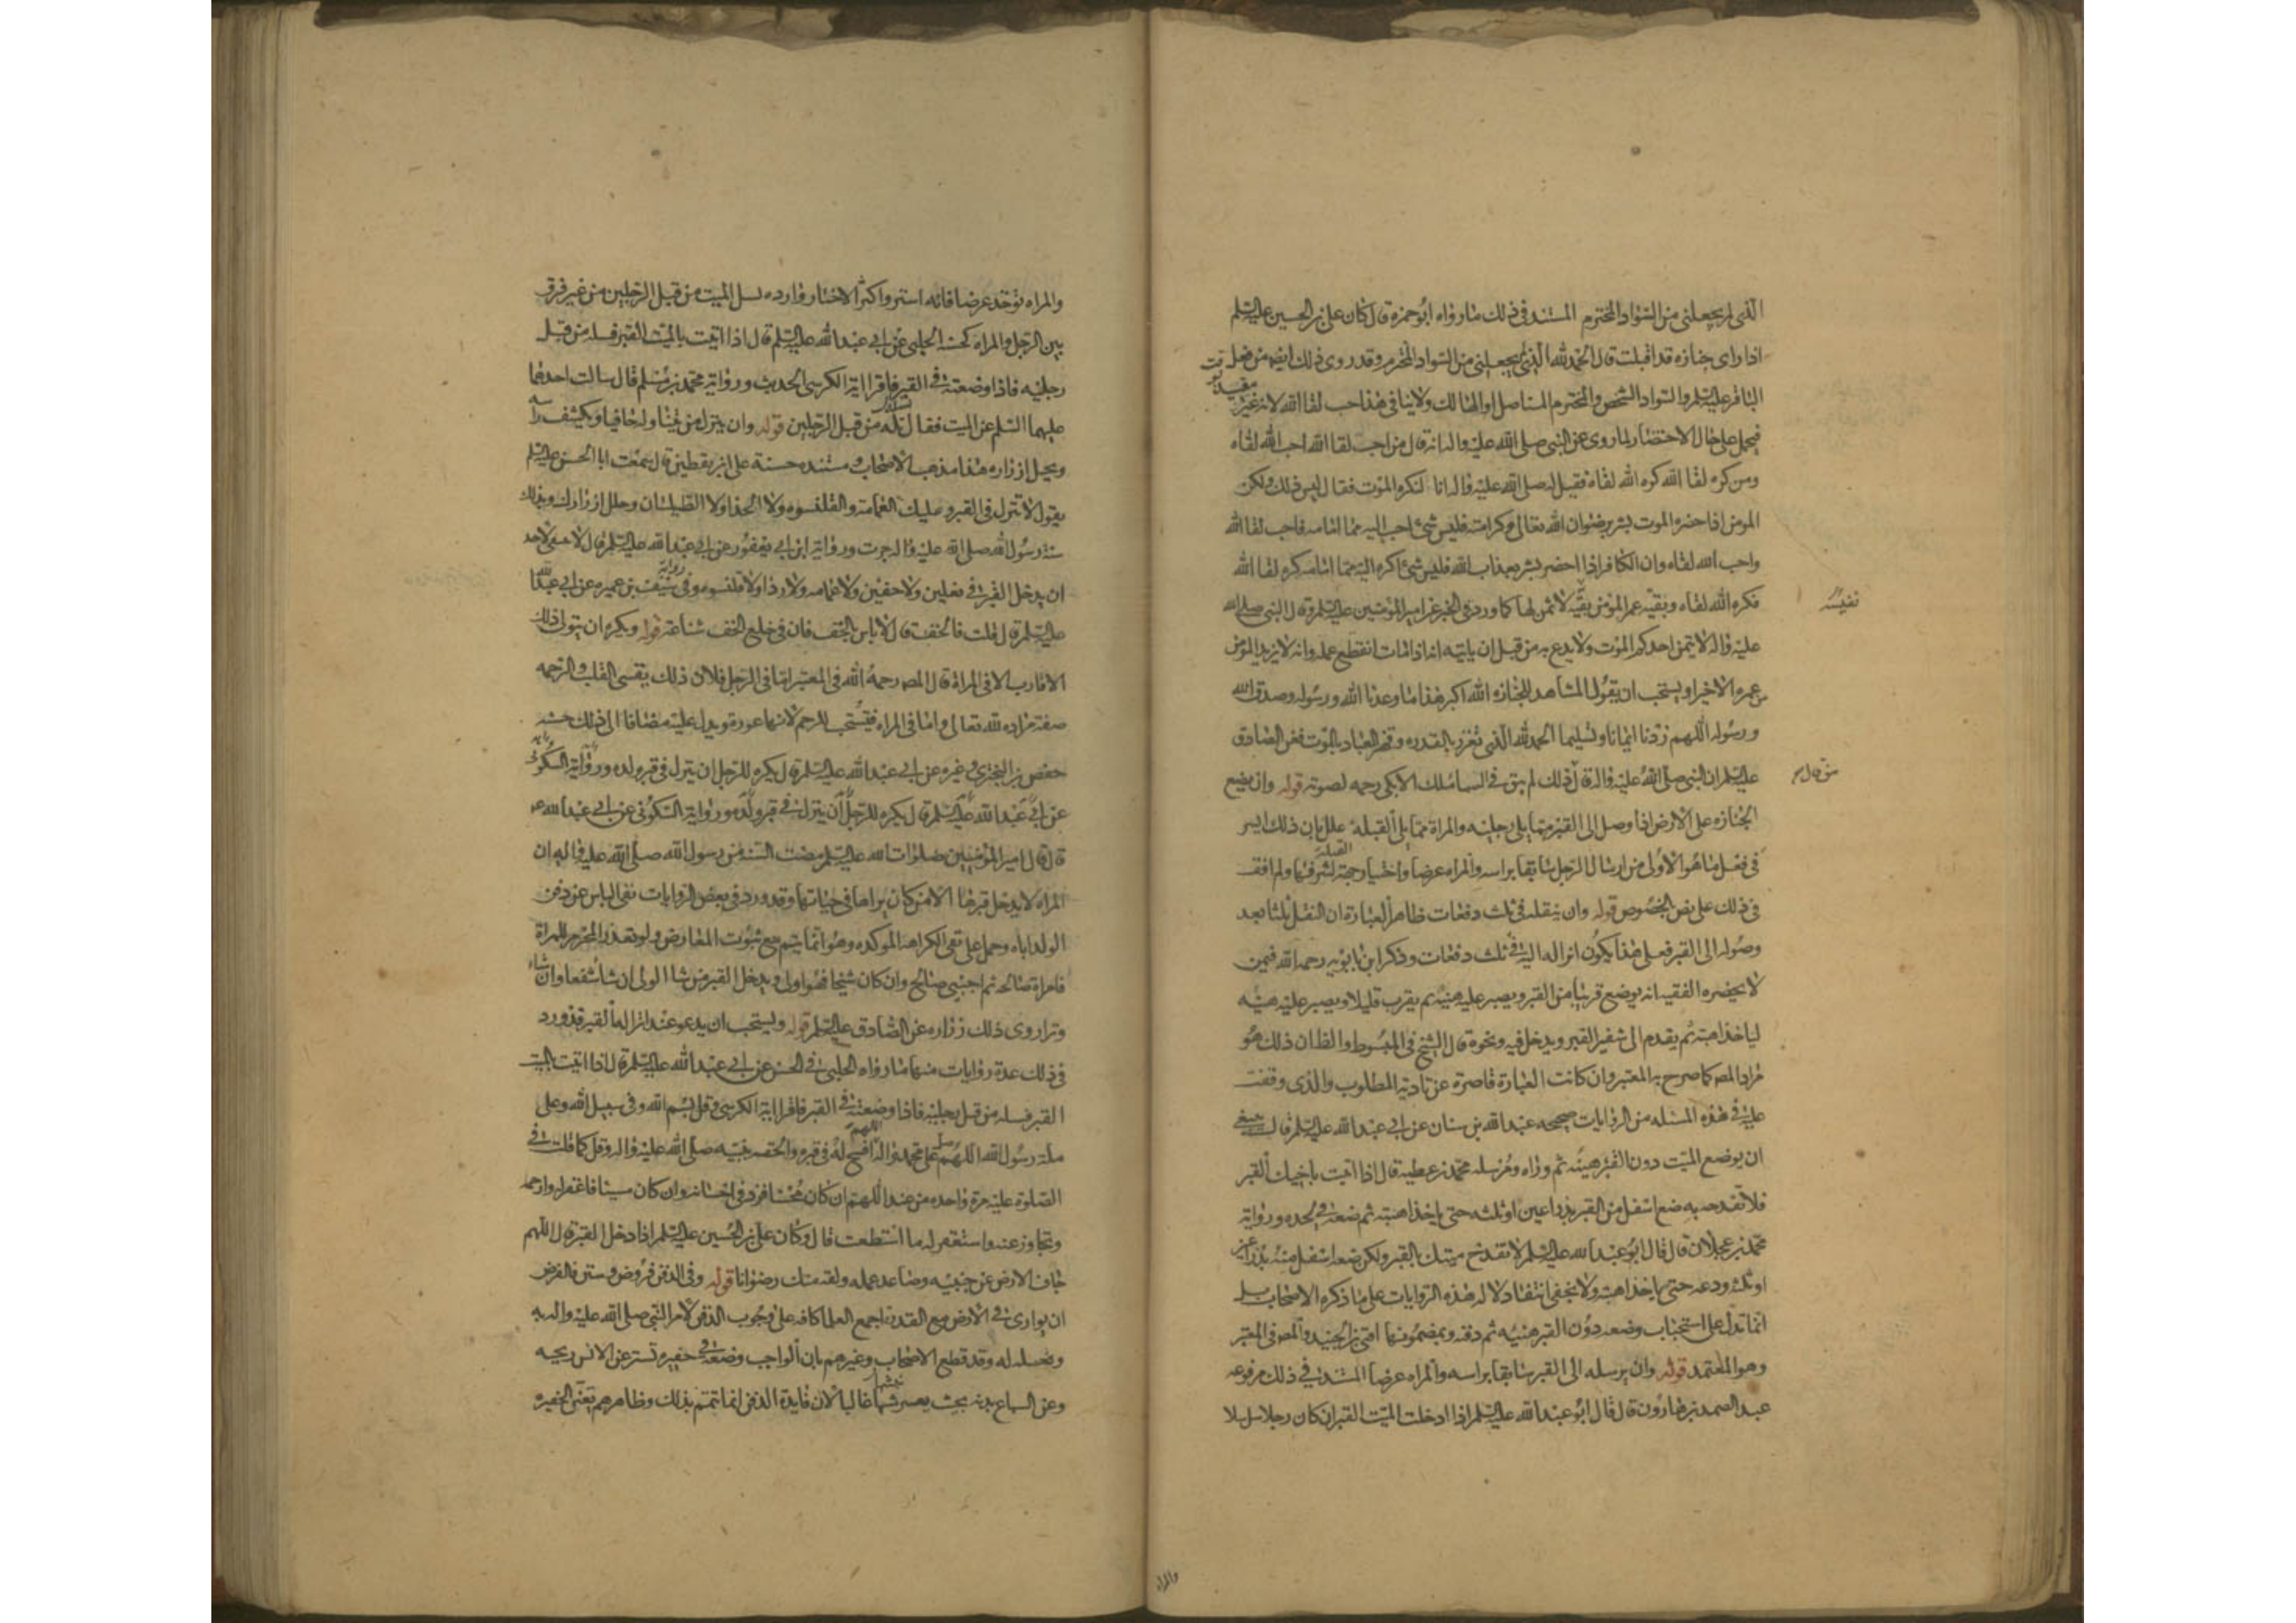 الذي لم يجعلني من السواد المخترم المستند في ذلك مارواه ابو حمزه قال كان علي بن الحسين عليه السلم
اذا راى جنازه قد اقبلت قال الحمد لله الذي لم يجعلني من السواد المخترم وقد روى ذلك ايضا من فعل
الباقر عليه السلم والسواد الشخص والمخترم الهالك او المستاصل ولا ينافي هذا حب لقا الله لانه غير مقيد بوقت
فيحمل على حال الاحتضار لما روى عن النبي صلى الله عليه واله انه قال من احب لقا الله احب الله لقاه
ومن كره لقا الله كره الله لقاه فقيل له صلى الله عليه واله انا لنكره الموت فقال ليس ذلك ولكن
المومن اذا حضره الموت بشر برضوان الله تعالى وكرامته فليس شئ احب اليه مما امامه فاحب لقا الله
واحب الله لقاه وان الكافر اذا احضر بشر بعذاب الله فليس شئ اكره اليه مما امامه كره لقا الله
فكره الله لقاه وبقيه عمر المؤمن نفيسة لا ثمن لها كما ورد في الخبر عن امير المؤمنين عليه السلم وقال النبي صلى الله
عليه واله لا يتمن احدكم الموت ولا يدع به من قبل ان ياتيه انه اذا مات انقطع عمله وانه لا يزيد المؤمن
من عمره الا خيرا ويستحب ان يقول المشاهد للجنازه الله اكبر هذا ما وعدنا الله ورسوله وصدق الله
ورسوله اللهم زدنا ايمانا وتسليما الحمد لله الذي تعزز بالقدره وقهر العباد بالموت فعن الصادق
عليه السلم ان النبي صلى الله عليه واله قال من قال ذلك لم يبق في السما ملك الا بكى رحمه لصوته قوله وان يضع
الجنازه على الارض اذا وصل الى القبر مما يلي رجليه والمراة مما يلي القبلة علل بان ذلك ايسر
في فعل ما هو الاولى من ارسال الرجل سابقا براسه والمراه عرضا واختيار جهة القبلة لشرفها ولم اقف
في ذلك على نص بالخصوص قوله وان ينقله في ثلث دفعات ظاهر العبارة ان النقل ثلثا بعد
وصوله الى القبر فعلى هذا يكون انزاله اليه في ثلث دفعات وذكر ابن بابويه رحمه الله فيمن
لا يحضره الفقيه انه يوضع قريبا من القبر ويصبر عليه هنيه ثم يقرب قليلا ويصبر عليه هنيه
لياخذ اهبته ثم يقدم الى شفير القبر ويدخل فيه ونحوه قال الشيخ في المبسوط والظاهر ان ذلك هو
مراد المص كما صرح به المعتبر وان كانت العبارة قاصرة عن تادية المطلوب والذي وقفت
عليه في هذه المسئله من الروايات صحيحه عبد الله بن سنان عن ابي عبد الله عليه السلم قال ينبغي
ان يوضع الميت دون القبر هنيئه ثم واره ومرسله محمد بن عطيه قال اذا اتيت باخيك القبر
فلا تفدحه به ضع اسفل من القبر بذراعين او ثلثه حتى ياخذ اهبته ثم ضعه في لحده ورواية
محمد بن عجلان قال قال ابو عبد الله عليه السلم لا تفدح ميتك بالقبر ولكن ضعه اسفل منه بذراعين
او ثلثه ودعه حتى ياخذ اهبته ولا يخفى انتفاء دلاله هذه الروايات على ما ذكره الاصحاب بل
انما تدل على استحباب وضعه دون القبر هنيئه ثم دفنه وبمضمونها افتى ابن الجنيد والمص في المعتبر
وهو المعتمد قوله وان يرسله الى القبر سابقا براسه والمراه عرضا المستند في ذلك مرفوعه
عبد الصمد بن هارون قال قال ابو عبد الله عليه السلم اذا ادخلت الميت القبر ان كان رجلا سل سلا
والمراه
والمراه توخذ عرضا فانه استر واكثر الاخبار وارده بسل الميت من قبل الرجلين من غير فرق
بين الرجل والمراه كحسنة الحلبي عن ابي عبد الله عليه السلم قال اذا اتيت بالميت القبر فسله من قبل
رجليه فاذا وضعته في القبر فاقرا اية الكرسي الحديث ورواية محمد بن مسلم قال سالت احدهما
عليهما السلم عن الميت فقال تسله من قبل الرجلين قوله وان ينزل من يتناوله حافيا ويكشف راسه
ويحل ازراره هذا مذهب الاصحاب ومستنده حسنة علي بن يقطين قال سمعت ابا الحسن عليه السلم
يقول لا تنزل في القبر وعليك العمامة والقلنسوه ولا الحذا ولا الطيلسان وحلل ازرارك وبذلك
سنة رسول الله صلى الله عليه واله جرت ورواية ابن ابي يعفور عن ابي عبد الله عليه السلم قال لا ينبغي لاحد
ان يدخل القبر في نعلين ولا خفين ولا عمامه ولا رداء ولا قلنسوه وفي رواية سيف بن عميره عن ابي عبد الله
عليه السلم قال قلت فالخف قال لا باس بالخف فان في خلع الخف شناعة قوله ويكره ان يتولى ذلك
الاقارب الا في المراة قال المص رحمه الله في المعتبر اما في الرجل فلان ذلك يقسى القلب والرحمه
صفة مراده لله تعالى واما في المراه فيستحب للرحم لانها عورة ويدل عليه مضافا الى ذلك حسنه
حفص بن البختري وغيره عن ابي عبد الله عليه السلم قال يكره للرجل ان ينزل في قبر ولده ورواية السكوني
عن ابي عبد الله عليه السلم قال يكره للرجل ان ينزل في قبر ولده ورواية السكوني عن ابي عبد الله ع
قال قال امير المؤمنين صلوات الله عليه السلم مضت السنة من رسول الله صلى الله عليه واله ان
المراه لا يدخل قبرها الا من كان يراها في حياتها وقد ورد في بعض الروايات نفي الباس عن دفن
الولد اباه وحمل على نفي الكراهه الموكده وهو انما يتم مع ثبوت المعارض ولو تعذر المحرم للمراة
فامراة صالحه ثم اجنبي صالح وان كان شيخا فهو اولى ويدخل القبر من شا الولي ان شا شفعا وان شاء
وترا روى ذلك زراره عن الصادق عليه السلم قوله ويستحب ان يدعو عند انزاله القبر قد ورد
في ذلك عدة روايات منها ما رواه الحلبي في الحسن عن ابي عبد الله عليه السلم قال اذا اتيت بالميت
القبر فسله من قبل رجليه فاذا وضعته في القبر فاقرا اية الكرسي وقل بسم الله وفي سبيل الله وعلى
ملة رسول الله اللهم صل على محمد واله اللهم افسح له في قبره والحقه بنبيه صلى الله عليه واله وقل كما قلت في
الصلوة عليه مرة واحده من عند اللهم ان كان محسنا فزد في احسانه وان كان مسيئا فاغفر له وارحمه
وتجاوز عنه واستغفر له ما استطعت قال وكان علي بن الحسين عليه السلم اذا دخل القبر قال اللهم
جاف الارض عن جنبيه وصاعد عمله ولقه منك رضوانا قوله وفي الدفن فروض وسنن فالفرض
ان يوارى في الارض مع القدرة اجمع العلما كافه على وجوب الدفن لامر النبي صلى الله عليه واله به
وفعله له وقد قطع الاصحاب وغيرهم بان الواجب وضعه في حفيره تستر عن الانس ريحه
وعن السباع بدنه بحيث يعسر نبشها غالبا لان فايدة الدفن انما تتم بذلك وظاهرهم تعين الحفيره